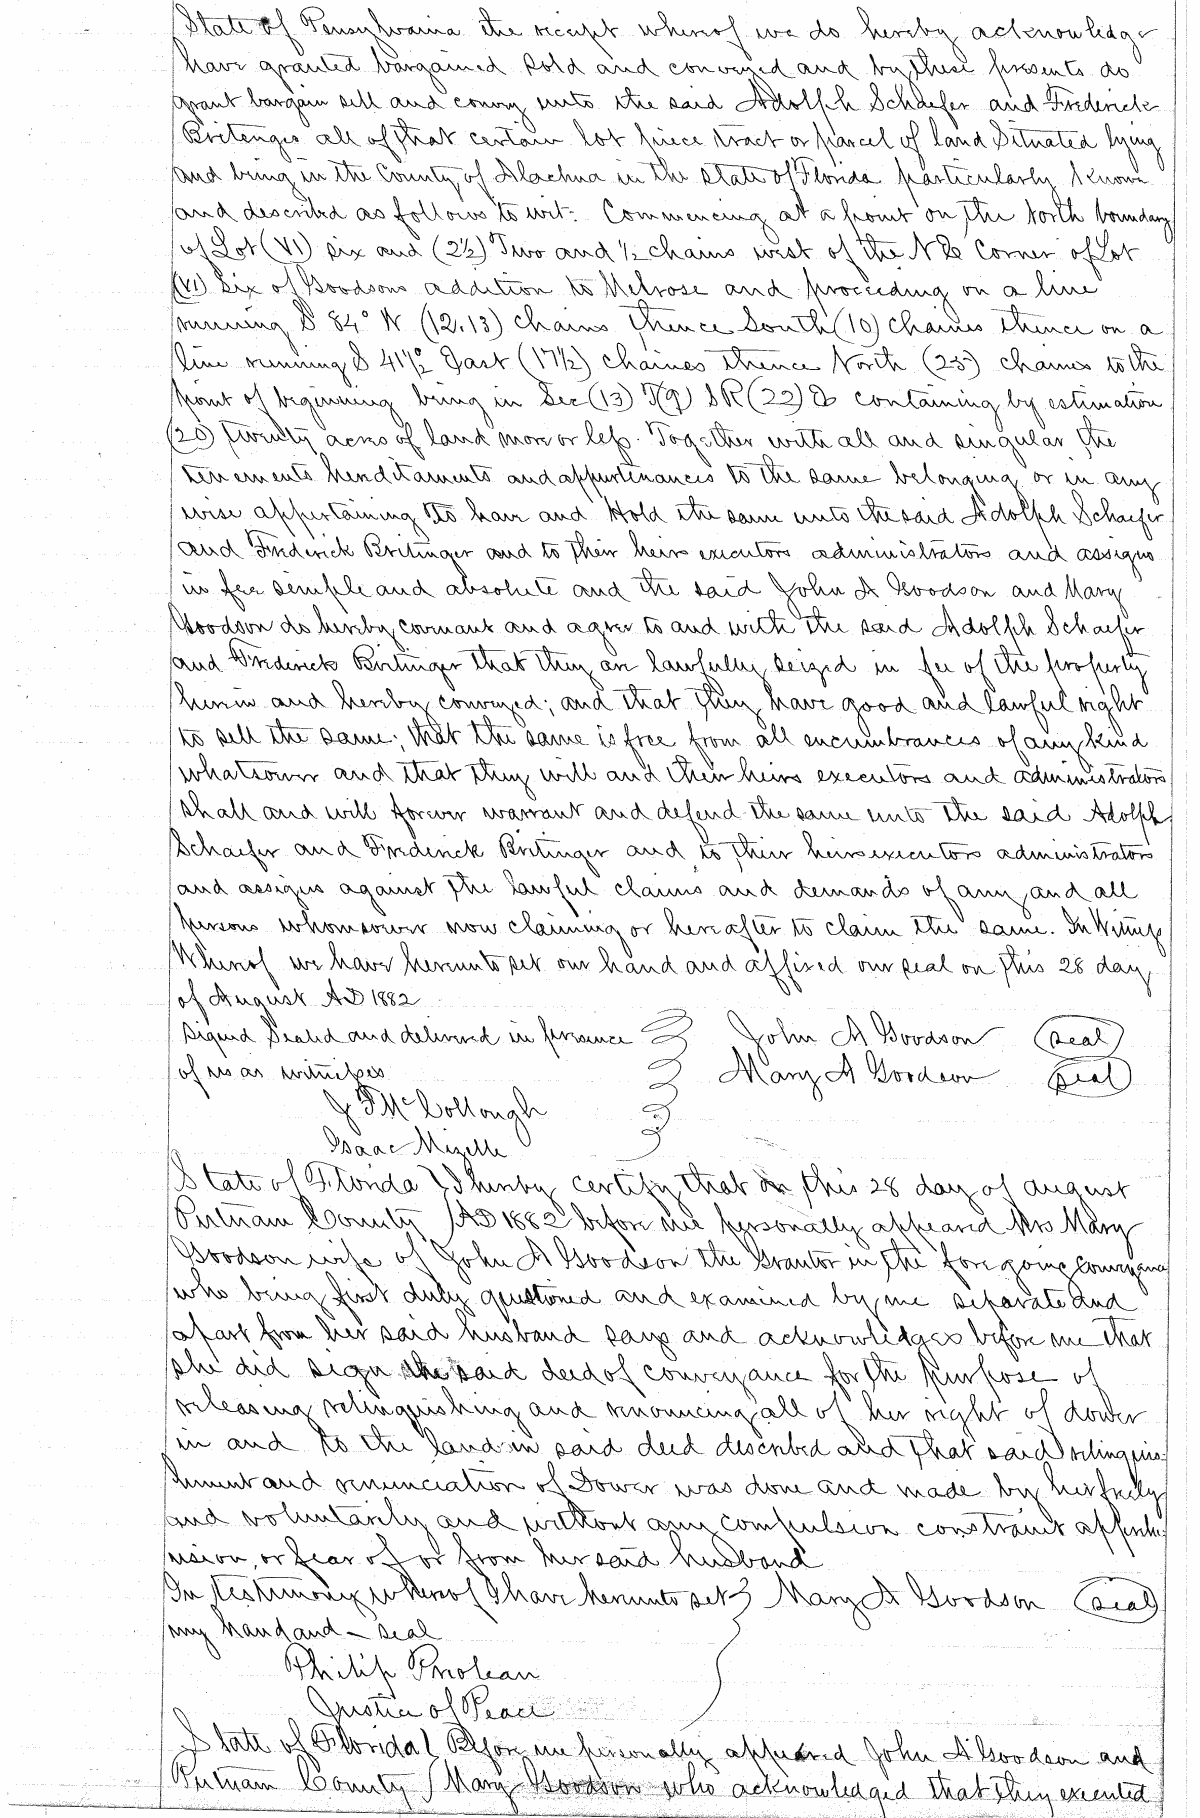 State of Pensylvania the receipt whereof we do hereby acknowledge
have granted bargained sold and conveyed and by these presents do
grant bargain sell and convey unto the said Adolph Schaefer and Frederick
Britenger all of that certain lot piece tract or parcel of land Situated lying
and being in the County of Alachua in the state of Florida particularly known
and described as follows to wit: Commencing at a point on the North boundary
of Lot (VI) six and (2½) Two and ½ chains west of the N E Corner of Lot
(VI) Six of Goodsons addition to Melrose and proceeding on a line
running S 84° W (12.13) chains thence South (10) chains thence on a
line running S 41½° East (17½) chaines thence North (25) chaines to the
point of beginning being in Sec (13) T(9) S R (22) E containing by estimation
(20) twenty acres of land more or less. Together with all and singular the
tenements hereditaments and appurtenances to the same belonging or in any
wise appertaining To have and Hold the same unto the said Adolph Schaefer
and Frederick Britinger and to their heirs executors administrators and assigns
in fee simple and absolute and the said John A Goodson and Mary
Goodson do hereby covenant and agree to and with the said Adolph Schaefer
and Frederick Britinger that they are lawfully seized in fee of the property
herein and hereby conveyed; and that they have good and lawful right
to sell the same; that the same is free from all encumbrances of any kind
whatsoever and that they will and their heirs executors and administrators
shall and will forever warrant and defend the same unto the said Adolph
Schaefer and Frederick Britinger and to their heirs executors administrators
and assigns against the lawful claims and demands of any and all
persons whomsoever now claiming or hereafter to claim the same. In Witness
Whereof we have hereunto set our hand and affixed our seal on this 28 day
of August AD 1882
Signed Sealed and delivered in presence John A Goodson (seal)
of us as witnesses Mary A Goodson (seal)
J F McCollough
Isaac Mizelle
State of Florida } I hereby certify that on this 28 day of august
Putnam County } AD 1882 before me personally appeared Mrs Mary
Goodson wife of John A Goodson the Grantor in the foregoing conveyance
who being first duly questioned and examined by me separate and
apart from her said husband says and acknowledges before me that
she did sign the said deed of conveyance for the purpose of
releasing relinquishing and renouncing all of her right of dower
in and to the land in said deed described and that said relinquis-
hment and renunciation of Dower was done and made by her freely
and voluntarily and without any compulsion constraint apprehe-
nsion, or fear of or from her said husband
In testimony whereof I have hereunto set } Mary A Goodson (seal)
my hand and seal
Philip
Justice of Peace
State of Florida } Before me personally appeared John A Goodson and
Putnam County } Mary Goodson who acknowledged that they executed